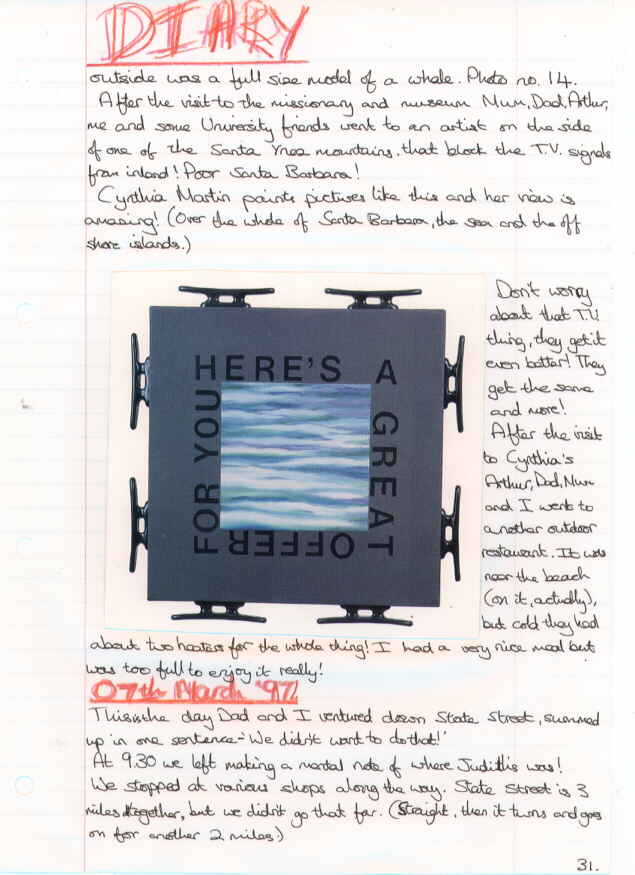 DIARY
outside was a full size model of a whale. Photo no. 14.
After the visit to the missionary and museum Mum, Dad, Arthur,
me and some University friends went to an artist on the side
of one of the Santa Ynez mountains, that block the T.V. signals
from inland! Poor Santa Barbara!
Cynthia Martin paints pictures like this and her view is
amazing! (Over the whole of Santa Barbara, the sea and the off
shore islands.)
HERE'S A
GREAT
OFFER
FOR YOU
Don't worry
about that T.V.
thing, they get it
even better! They
get the same
and more!
After the visit
to Cynthia's
Arthur, Dad, Mum
and I went to
another outdoor
restaurant. It was
near the beach
(on it, actually),
but cold they had
about two heaters for the whole thing! I had a very nice meal but
was too full to enjoy it really!
07th March '97
This is the day Dad and I ventured down State Street, summed
up in one sentence - 'We didn't want to do that!'
At 9.30 we left making a mental note of where Judith's was!
We stopped at various shops along the way. State Street is 3
miles together, but we didn't go that far. (Straight, then it turns and goes
on for another 2 miles.)
31.